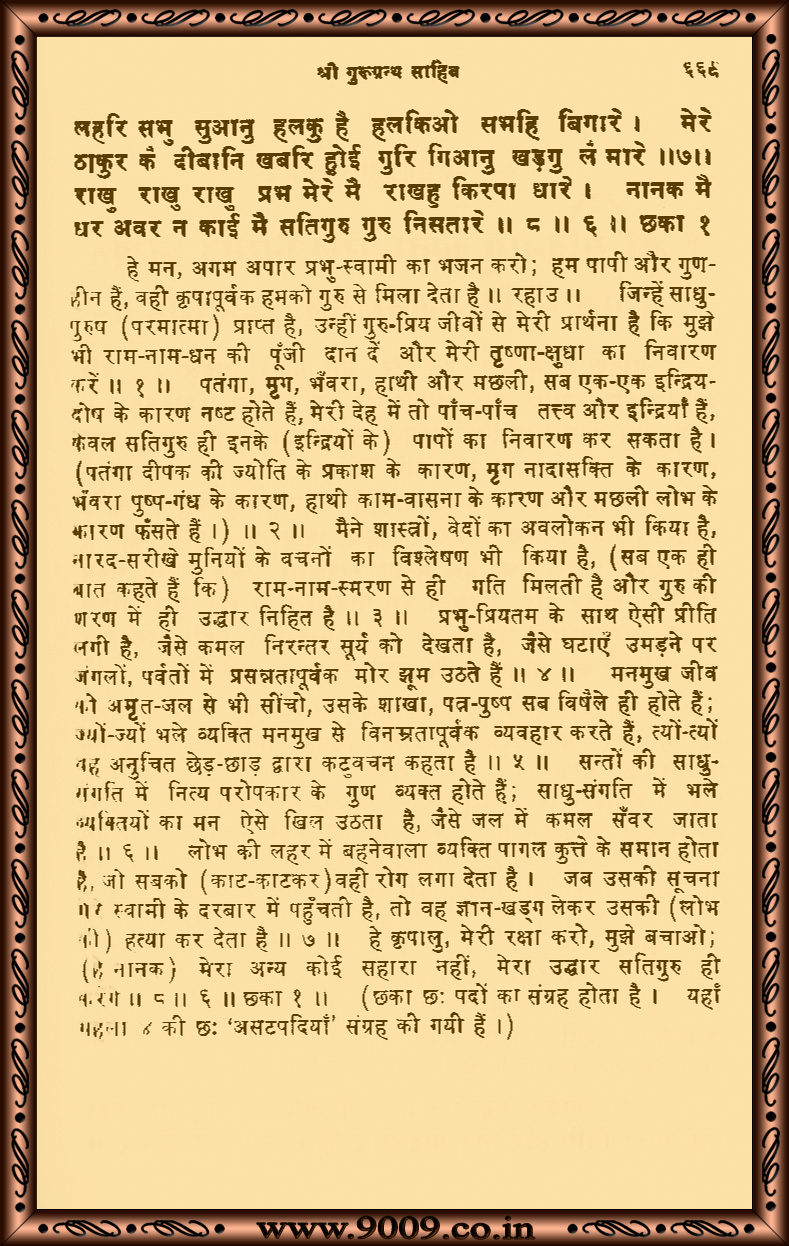 श्री गुरूग्रन्थ साहिब ६६९
लहरि सभु सुआनु हलकु है हलकिओ सभहि बिगारे । मेरे
ठाकुर कै दीबानि खबरि हुोई गुरि गिआनु खड़गु लै मारे ॥७॥
राखु राखु राखु प्रभ मेरे मै राखहु किरपा धारे । नानक मै
धर अवर न काई मै सतिगुरु गुरु निसतारे ॥ ८ ॥ ६ ॥ छका १
हे मन, अगम अपार प्रभु-स्वामी का भजन करो; हम पापी और गुण-
हीन हैं, वही कृपापूर्वक हमको गुरु से मिला देता है ॥ रहाउ ॥ जिन्हें साधु-
पुरुष (परमात्मा) प्राप्त है, उन्हीं गुरु-प्रिय जीवों से मेरी प्रार्थना है कि मुझे
भी राम-नाम-धन की पूँजी दान दें और मेरी तृष्णा-क्षुधा का निवारण
करें ॥ १ ॥ पतंगा, मृग, भँवरा, हाथी और मछली, सब एक-एक इन्द्रिय-
दोष के कारण नष्ट होते हैं, मेरी देह में तो पाँच-पाँच तत्त्व और इन्द्रियाँ हैं,
केवल सतिगुरु ही इनके (इन्द्रियों के) पापों का निवारण कर सकता है ।
(पतंगा दीपक की ज्योति के प्रकाश के कारण, मृग नादासक्ति के कारण,
भँवरा पुष्प-गंध के कारण, हाथी काम-वासना के कारण और मछली लोभ के
कारण फँसते हैं ।) ॥ २ ॥ मैने शास्त्रों, वेदों का अवलोकन भी किया है,
नारद-सरीखे मुनियों के वचनों का विश्लेषण भी किया है, (सब एक ही
बात कहते हैं कि) राम-नाम-स्मरण से ही गति मिलती है और गुरु की
शरण में ही उद्धार निहित है ॥ ३ ॥ प्रभु-प्रियतम के साथ ऐसी प्रीति
लगी है, जैसे कमल निरन्तर सूर्य को देखता है, जैसे घटाएँ उमड़ने पर
जंगलों, पर्वतों में प्रसन्नतापूर्वक मोर झूम उठते हैं ॥ ४ ॥ मनमुख जीव
को अमृत-जल से भी सींचो, उसके शाखा, पत्न-पुष्प सब विषैले ही होते हैं;
ज्यों-ज्यों भले व्यक्ति मनमुख से विनम्रतापूर्वक व्यवहार करते हैं, त्यों-त्यों
वह अनुचित छेड़-छाड़ द्वारा कटुवचन कहता है ॥ ५ ॥ सन्तों की साधु-
संगति में नित्य परोपकार के गुण व्यक्त होते हैं; साधु-संगति में भले
व्यक्तियों का मन ऐसे खिल उठता है, जैसे जल में कमल सँवर जाता
है ॥ ६ ॥ लोभ की लहर में बहनेवाला व्यक्ति पागल कुत्ते के समान होता
है, जो सबको (काट-काटकर) वही रोग लगा देता है । जब उसकी सूचना
मेरे स्वामी के दरबार में पहुँचती है, तो वह ज्ञान-खड्ग लेकर उसकी (लोभ
की) हत्या कर देता है ॥ ७ ॥ हे कृपालु, मेरी रक्षा करो, मुझे बचाओ;
(हे नानक) मेरा अन्य कोई सहारा नहीं, मेरा उद्धार सतिगुरु ही
करेंगे ॥ ८ ॥ ६ ॥ छका १ ॥ (छका छः पदों का संग्रह होता है । यहाँ
महला ४ की छः ‘असटपदियाँ’ संग्रह की गयी हैं ।)
www.9009.co.in